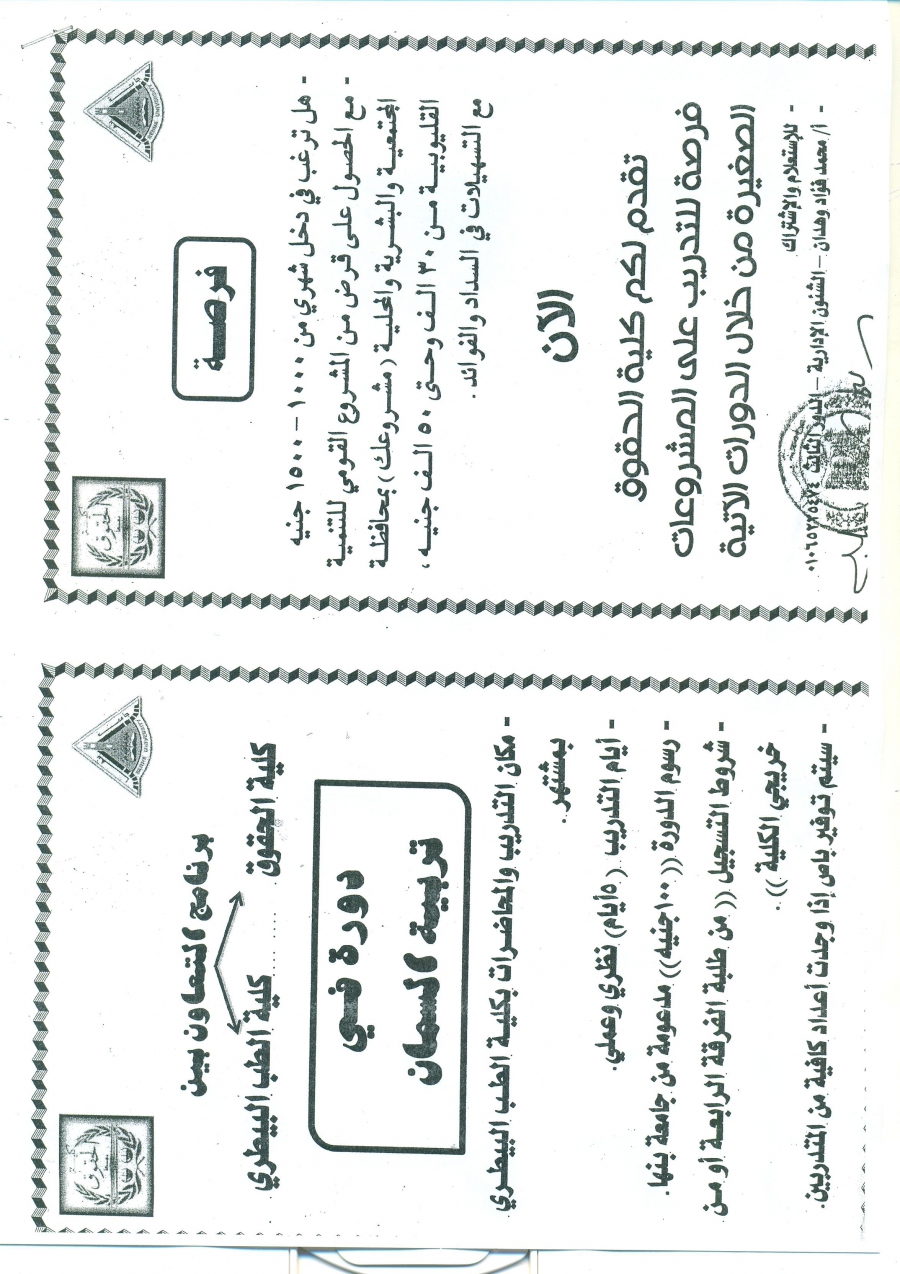 فرصة
- هل ترغب في دخل شهري من ١٠٠٠ – ١٥٠٠ جنيه
- مع الحصول على قرض من المشروع القومي للتنمية
المجتمعية والبشرية والمحلية ( مشروعك ) بمحافظة
القليوبية من ٣٠ الف وحتى ٥٠ الف جنيه ،
مع التسهيلات في السداد والفوائد .
الآن
تقدم لكم كلية الحقوق
فرصة للتدريب على المشروعات
الصغيرة من خلال الدورات الآتية
- للإستعلام والإشتراك
- أ/ محمد فؤاد وهدان – الشئون الإدارية – الدور الثالث
الحقوق
BENHA UNIVERSITY
برنامج التعاون بين
كلية الطب البيطري ........ كلية الحقوق
دورة في
تربية السمان
- مكان التدريب والمحاضرات بكلية الطب البيطري
بمشتهر.
- أيام التدريب (٥ أيام) نظري وعملي.
- رسوم الدورة ((١٠٠جنيه)) مدعومة من جامعة بنها.
- شروط التسجيل (( من طلبة الفرقة الرابعة أو من
خريجي الكلية )) .
- سيتم توفير باص إذا وجدت أعداد كافية من المتدربين.
الحقوق
BENHA UNIVERSITY